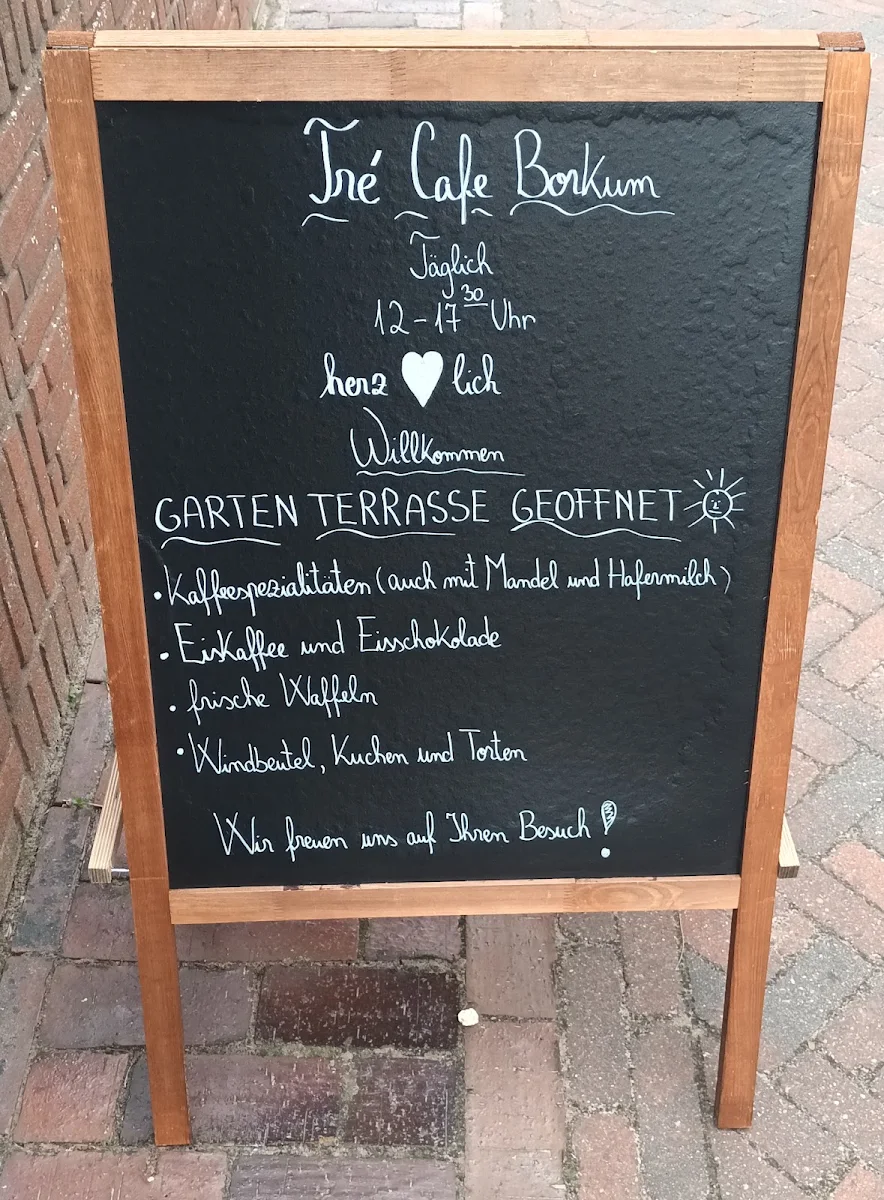 Tré Cafe Borkum
Täglich
12-17 30 Uhr
herz ♥ lich
Willkommen
GARTEN TERRASSE GEOFFNET
• Kaffeespezialitäten (auch mit Mandel und Hafermilch)
• Eiskaffee und Eisschokolade
• frische Waffeln
• Windbeutel, Kuchen und Torten
Wir freuen uns auf Ihren Besuch!